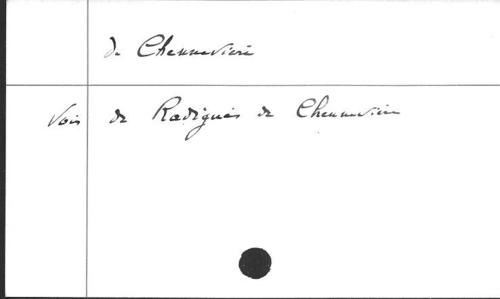 de Chennevière
Vois de Radiguès de Chennevière